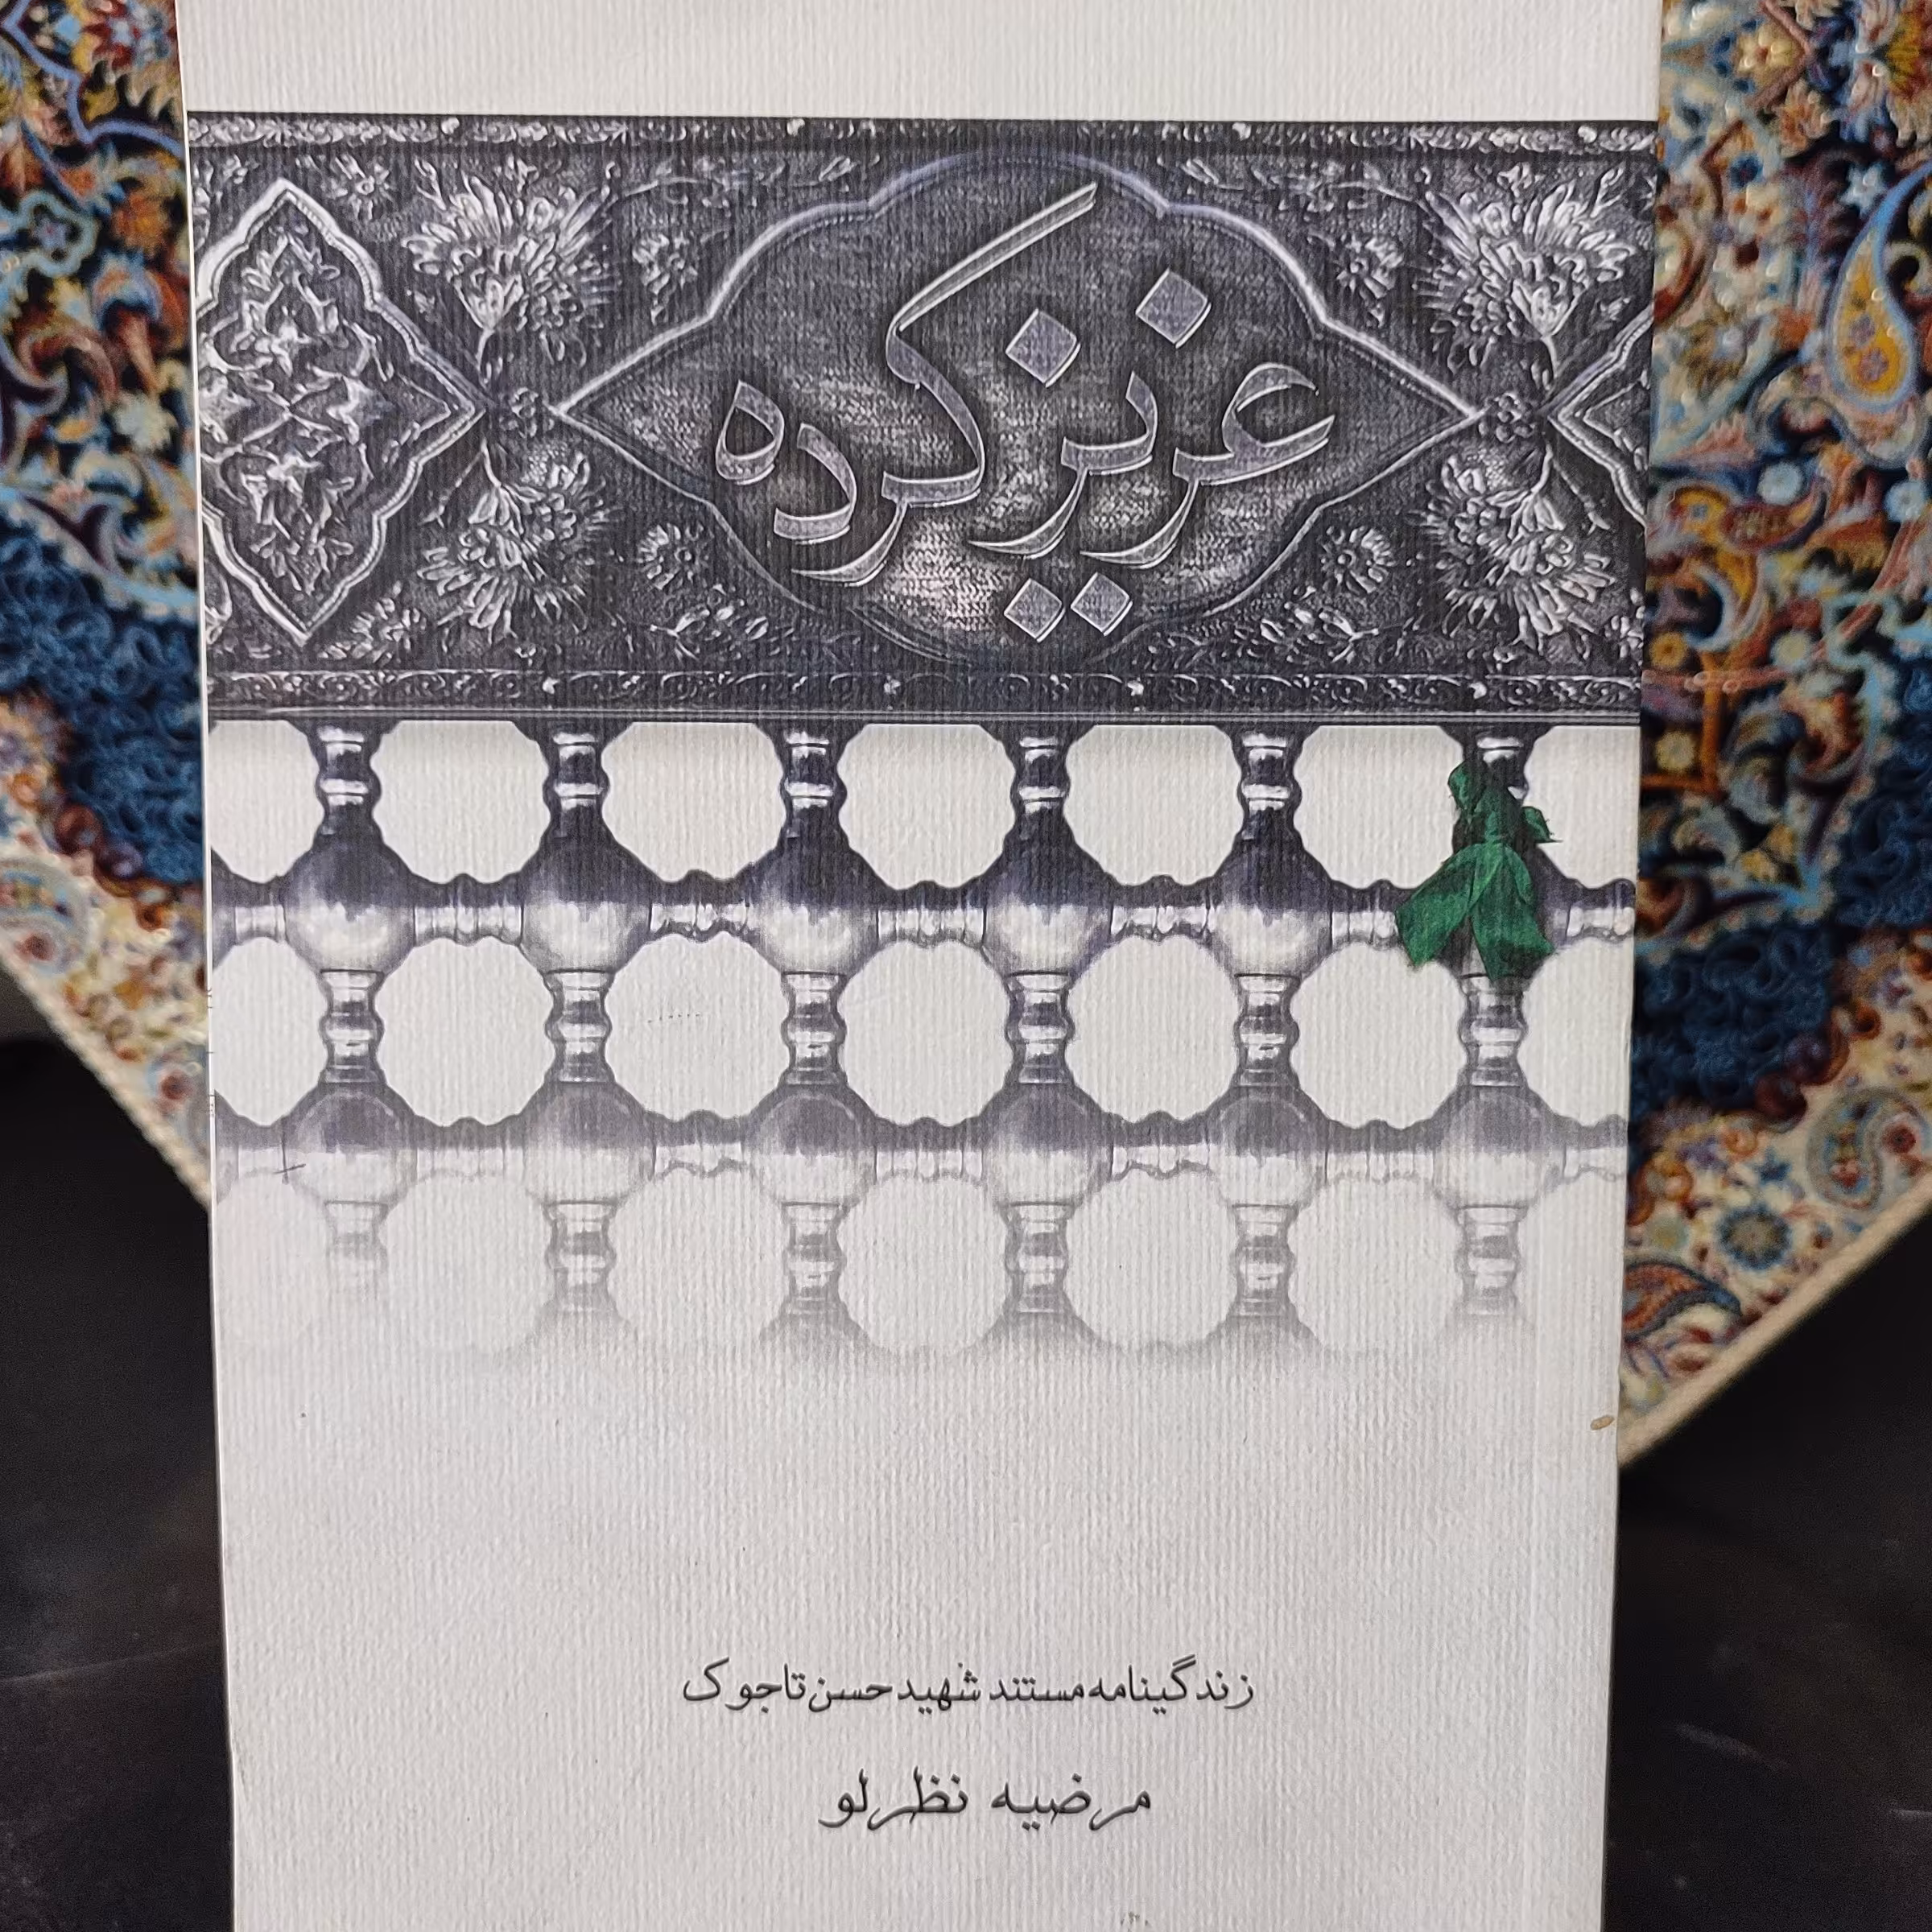 عزیزکرده
زندگینامه مستند شهید حسن تاجوک
مرضیه نظرلو